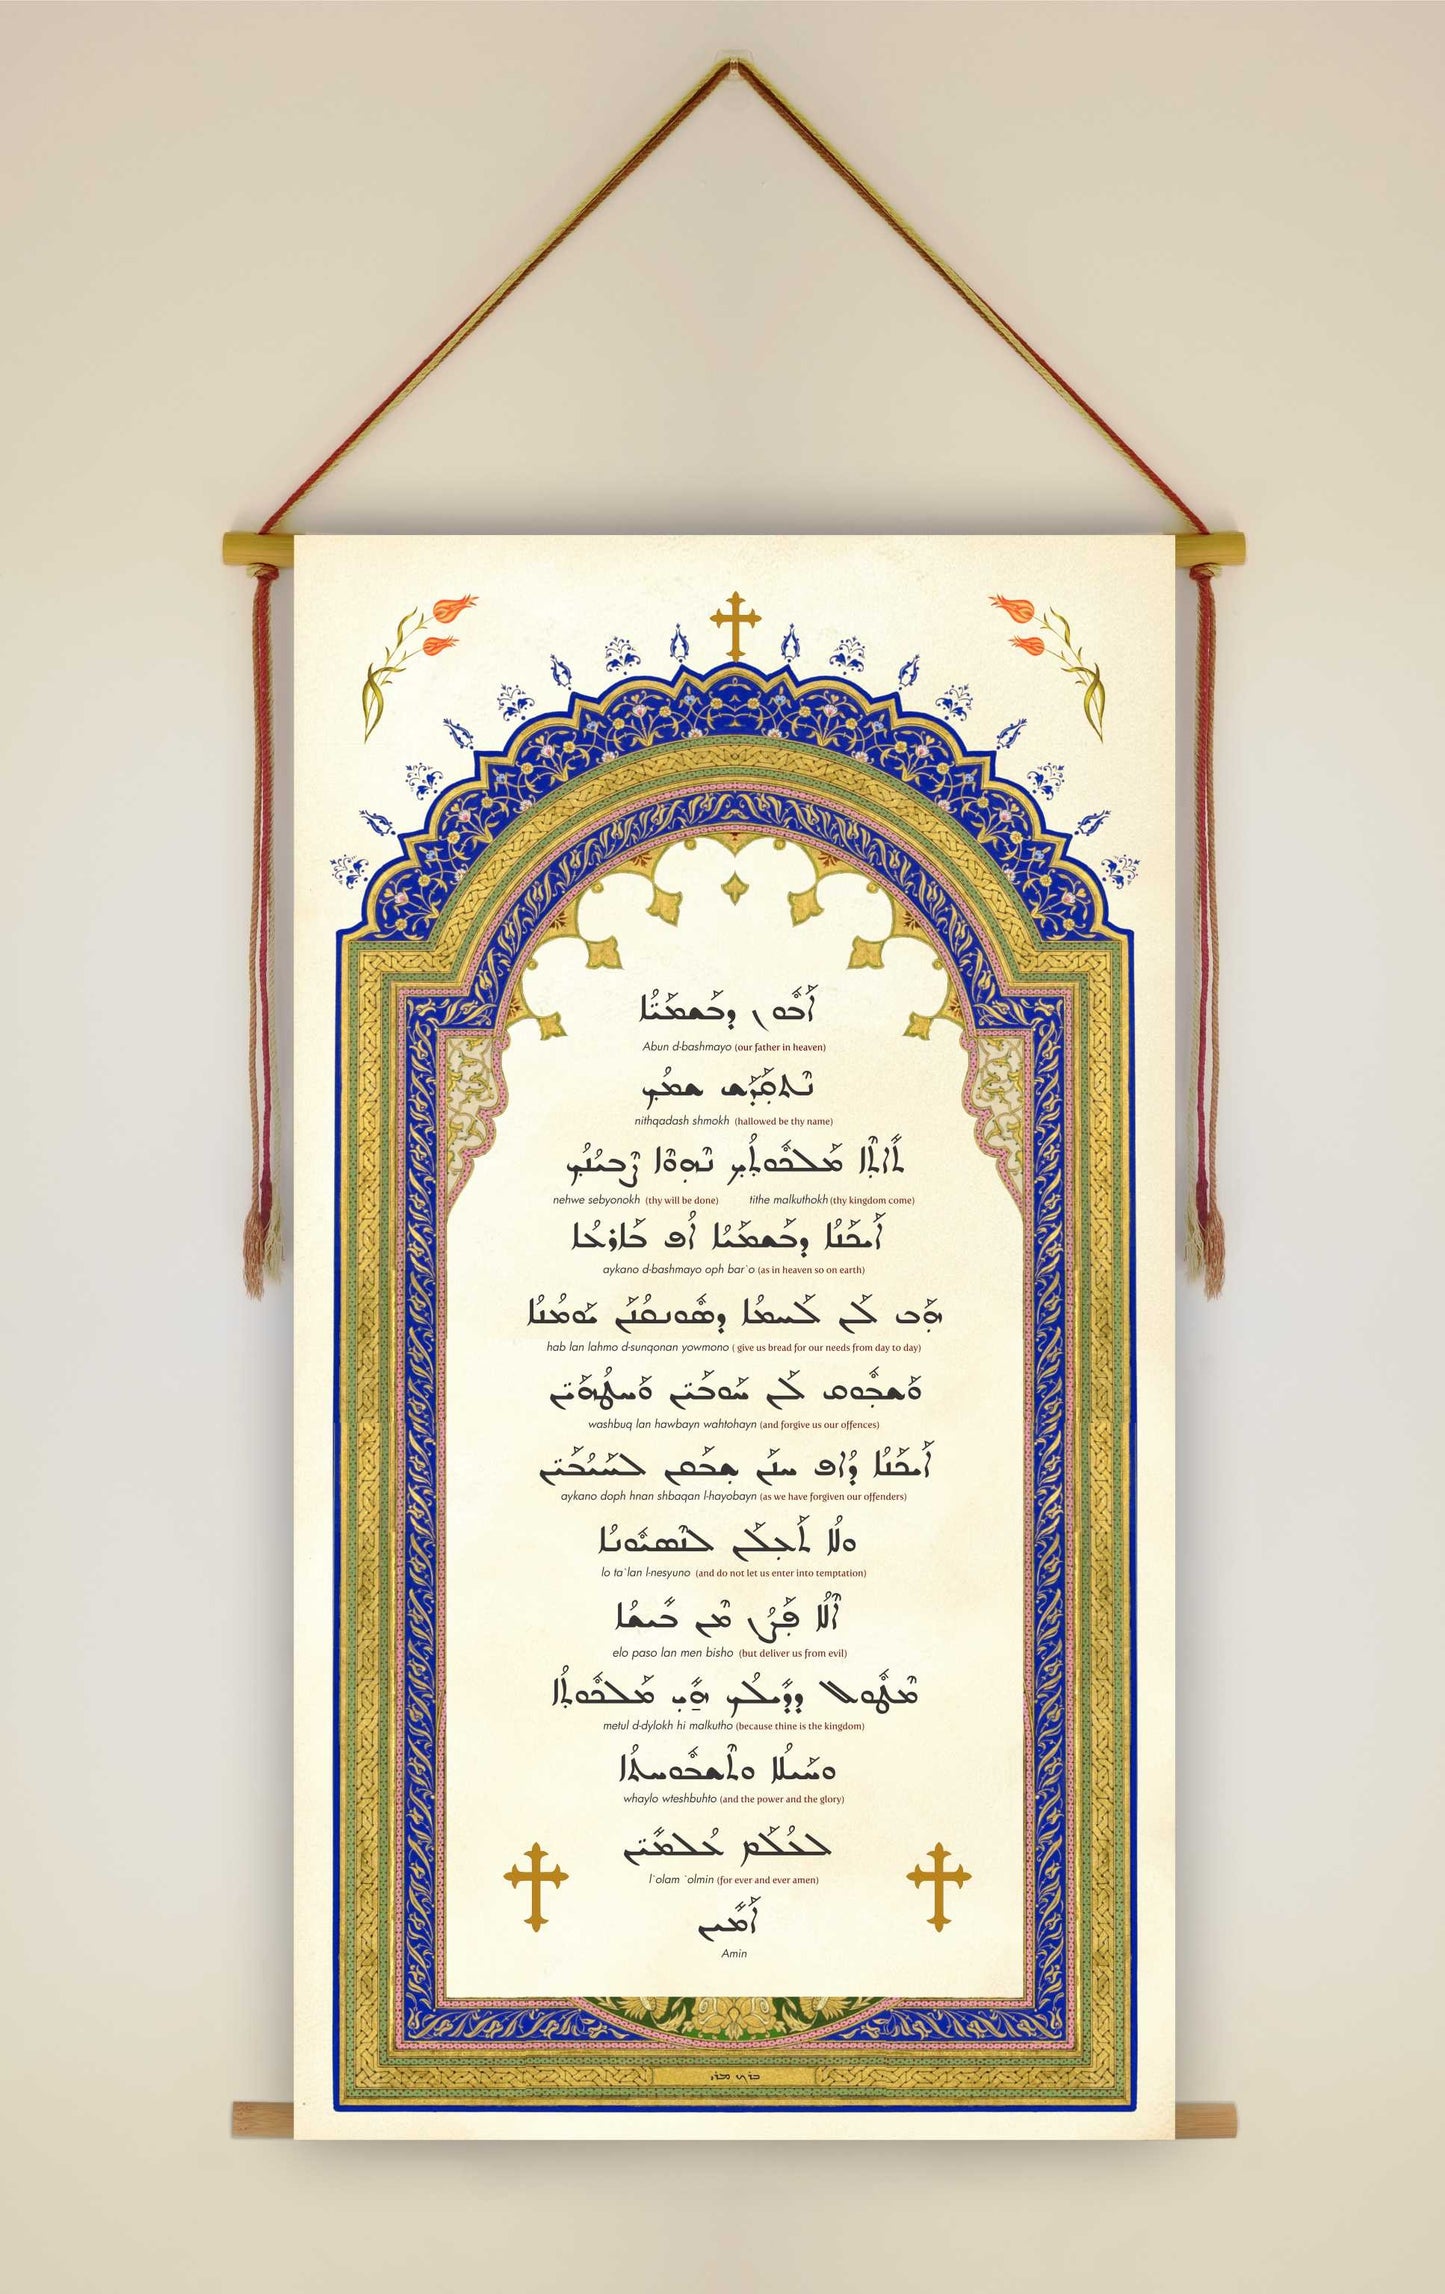 ܐܰܒܽܘܢ ܕܒܰܫܡܰܝܳ̈ܐ
Abun d-bashmayo (our father in heaven)
ܢܶܬܩܰܕܰܫ ܫܡܳܟ
nithqadash shmokh (hallowed be thy name)
ܬܺܐܬܶܐ ܡܰܠܟܽܘܬܳܟ ܢܶܗܘܶܐ ܨܶܒܝܳܢܳܟ
nehwe sebyonokh (thy will be done) tithe malkuthokh (thy kingdom come)
ܐܰܝܟܰܢܳܐ ܕܒܰܫܡܰܝܳܐ ܐܳܦ ܒܰܐܪܥܳܐ
aykano d-bashmayo oph bar`o (as in heaven so on earth)
ܗܰܒ ܠܰܢ ܠܰܚܡܳܐ ܕܣܽܘܢܩܳܢܰܢ ܝܰܘܡܳܢܳܐ
hab lan lahmo d-sunqonan yowmono ( give us bread for our needs from day to day)
ܘܰܫܒܽܘܩ ܠܰܢ ܚܰܘܒܰܝ̈ܢ ܘܰܚܛܳܗܰܝ̈ܢ
washbuq lan hawbayn wahtohayn (and forgive us our offences)
ܐܰܝܟܰܢܳܐ ܕܳܐܦ ܚܢܰܢ ܫܒܰܩܢ ܠܚܰܝܳܒܰܝ̈ܢ
aykano doph hnan shbaqan l-hayobayn (as we have forgiven our offenders)
ܘܠܳܐ ܬܰܥܠܰܢ ܠܢܶܣܝܽܘܢܳܐ
lo ta`lan l-nesyuno (and do not let us enter into temptation)
ܐܶܠܳܐ ܦܰܨܳܢ ܡܶܢ ܒܺܝܫܳܐ
elo paso lan men bisho (but deliver us from evil)
ܡܶܛܽܘܠ ܕܕܺܝܠܳܟ ܗܺܝ ܡܰܠܟܽܘܬܳܐ
metul d-dylokh hi malkutho (because thine is the kingdom)
ܘܚܰܝܠܳܐ ܘܬܶܫܒܽܘܚܬܳܐ
whaylo wteshbuhto (and the power and the glory)
ܠܥܳܠܰܡ ܥܳܠܡܺܝ̈ܢ
l`olam `olmin (for ever and ever amen)
ܐܰܡܺܝܢ
Amin